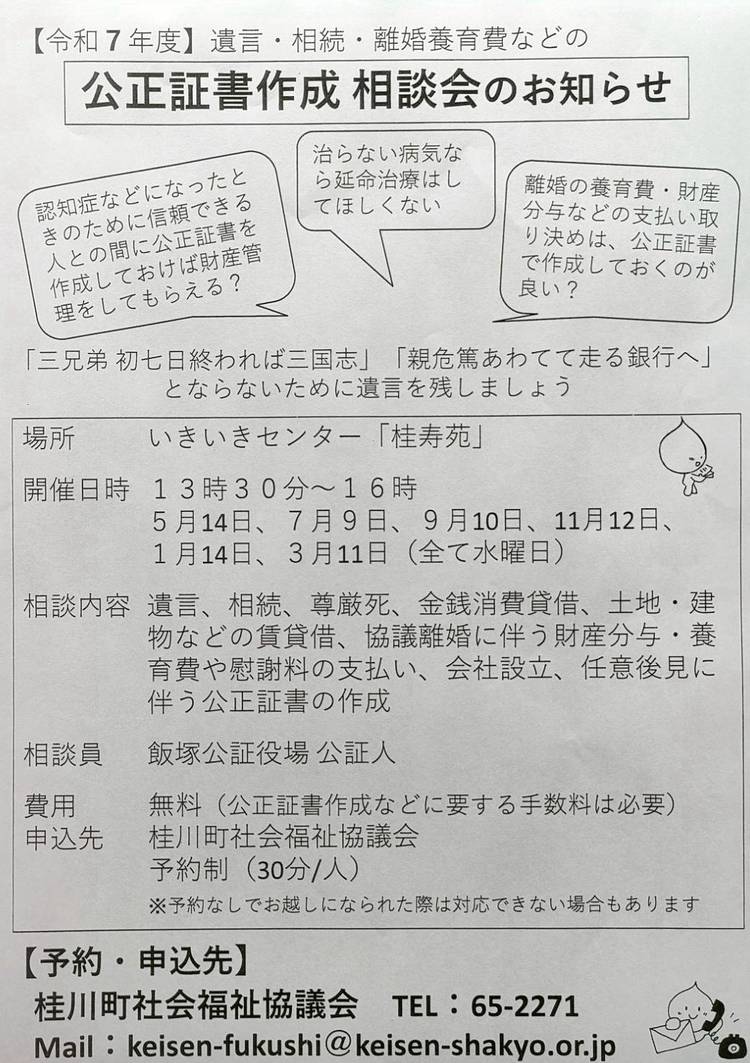 【令和７年度】遺言・相続・離婚養育費などの
公正証書作成 相談会のお知らせ
認知症などになったと
きのために信頼できる
人との間に公正証書を
作成しておけば財産管
理をしてもらえる？
治らない病気な
ら延命治療はし
てほしくない
離婚の養育費・財産
分与などの支払い取
り決めは、公正証書
で作成しておくのが
良い？
「三兄弟 初七日終われば三国志」「親危篤あわてて走る銀行へ」
とならないために遺言を残しましょう
場所 いきいきセンター「桂寿苑」
開催日時 １３時３０分～１６時
５月14日、７月９日、９月10日、11月12日、
１月14日、３月11日（全て水曜日）
相談内容 遺言、相続、尊厳死、金銭消費貸借、土地・建
物などの賃貸借、協議離婚に伴う財産分与・養
育費や慰謝料の支払い、会社設立、任意後見に
伴う公正証書の作成
相談員 飯塚公証役場 公証人
費用 無料（公正証書作成などに要する手数料は必要）
申込先 桂川町社会福祉協議会
予約制（30分/人）
※予約なしでお越しになられた際は対応できない場合もあります
【予約・申込先】
桂川町社会福祉協議会 TEL：65-2271
Mail：keisen-fukushi@keisen-shakyo.or.jp